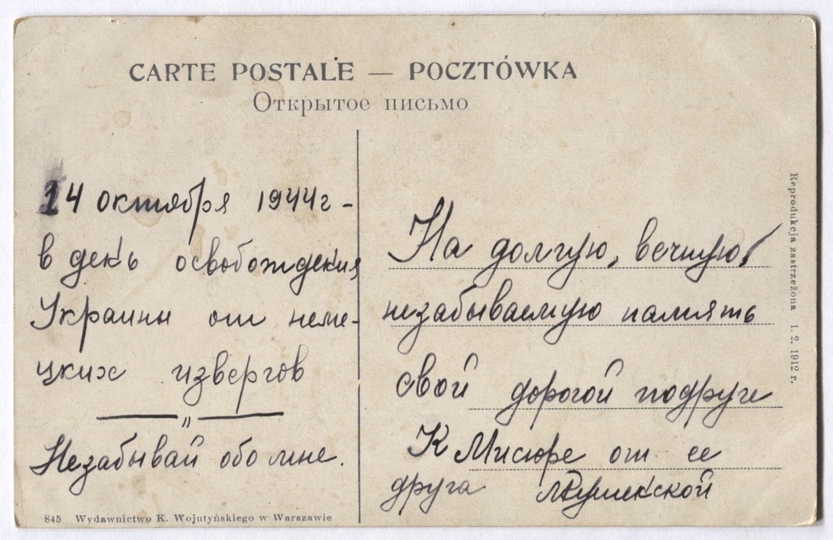 CARTE POSTALE — POCZTÓWKA
Открытое письмо
14 октября 1944г -
в день освобождения
Украины от неме-
цких извергов
"
Незабывай обо мне.
На долгую, вечную,
незабываемую память
свой дорогой подруге
К Мисюре от ее
друга
Reprodukcja zastrzeżona 1. 2. 1912 r.
845 Wydawnictwo K. Wojutyńskiego w Warszawie